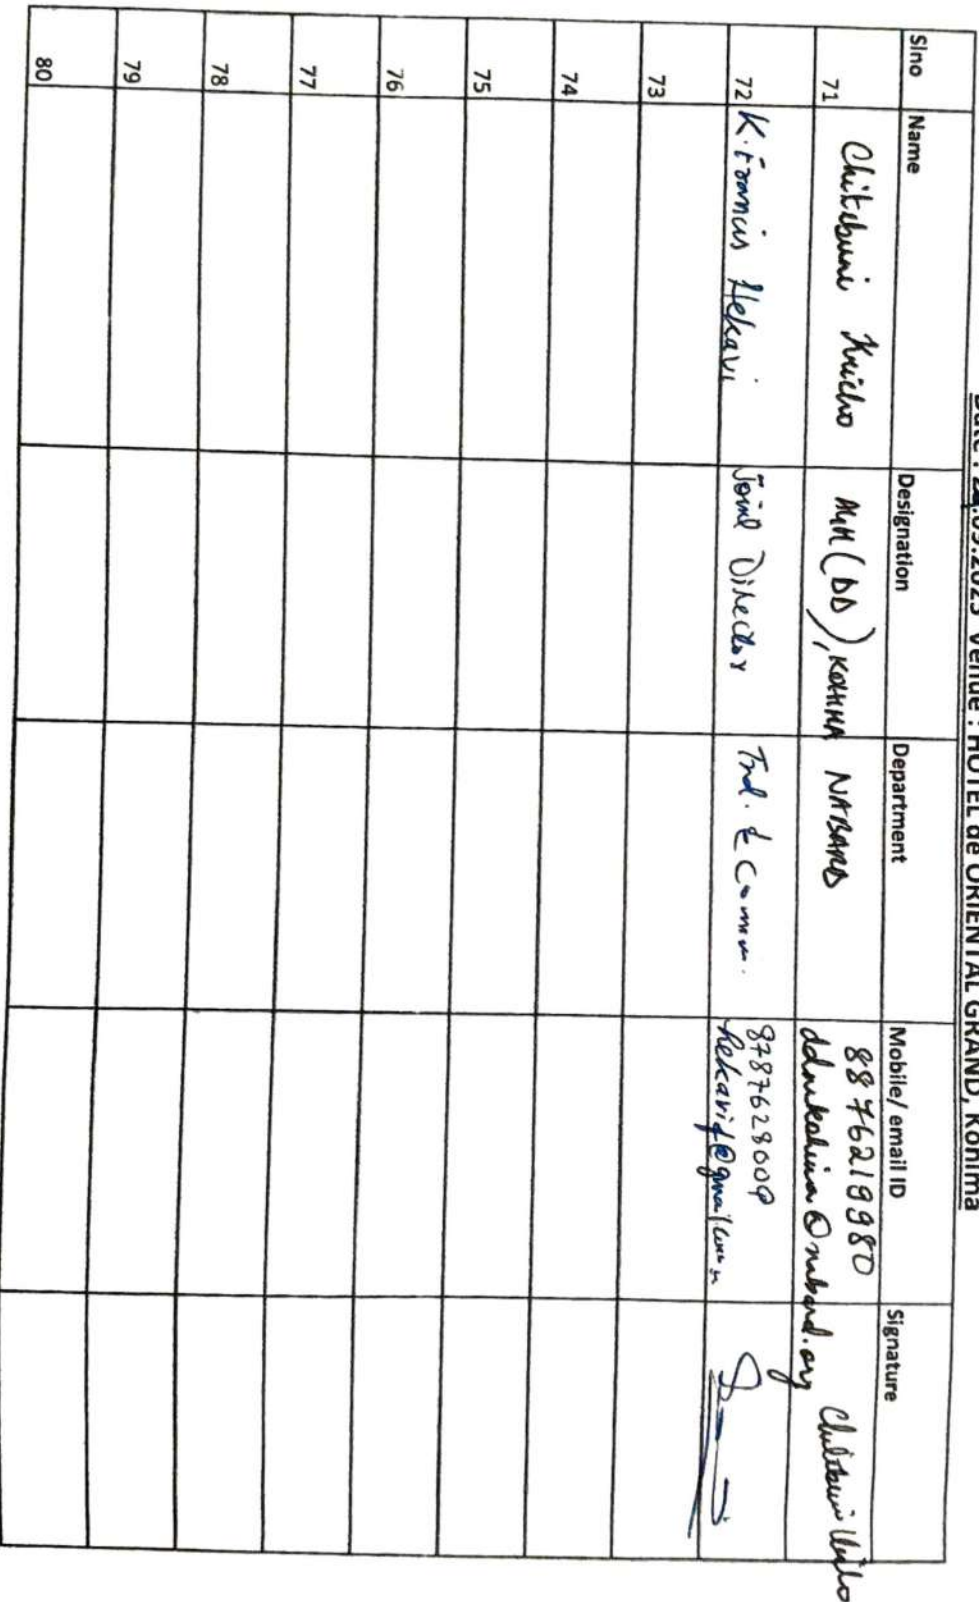 .09.2023 Venue : HOTEL de ORIENTAL GRAND, Kohima
Slno Name Designation Department Mobile/ email ID Signature
71 Chitebuni Kricho AGM (DD), KOHIMA NABARD 8876219980
ddmkohima@nabard.org
72 K. Francis Hekavi Joint Director Ind. & Comm. 878762800
73
74
75
76
77
78
79
80